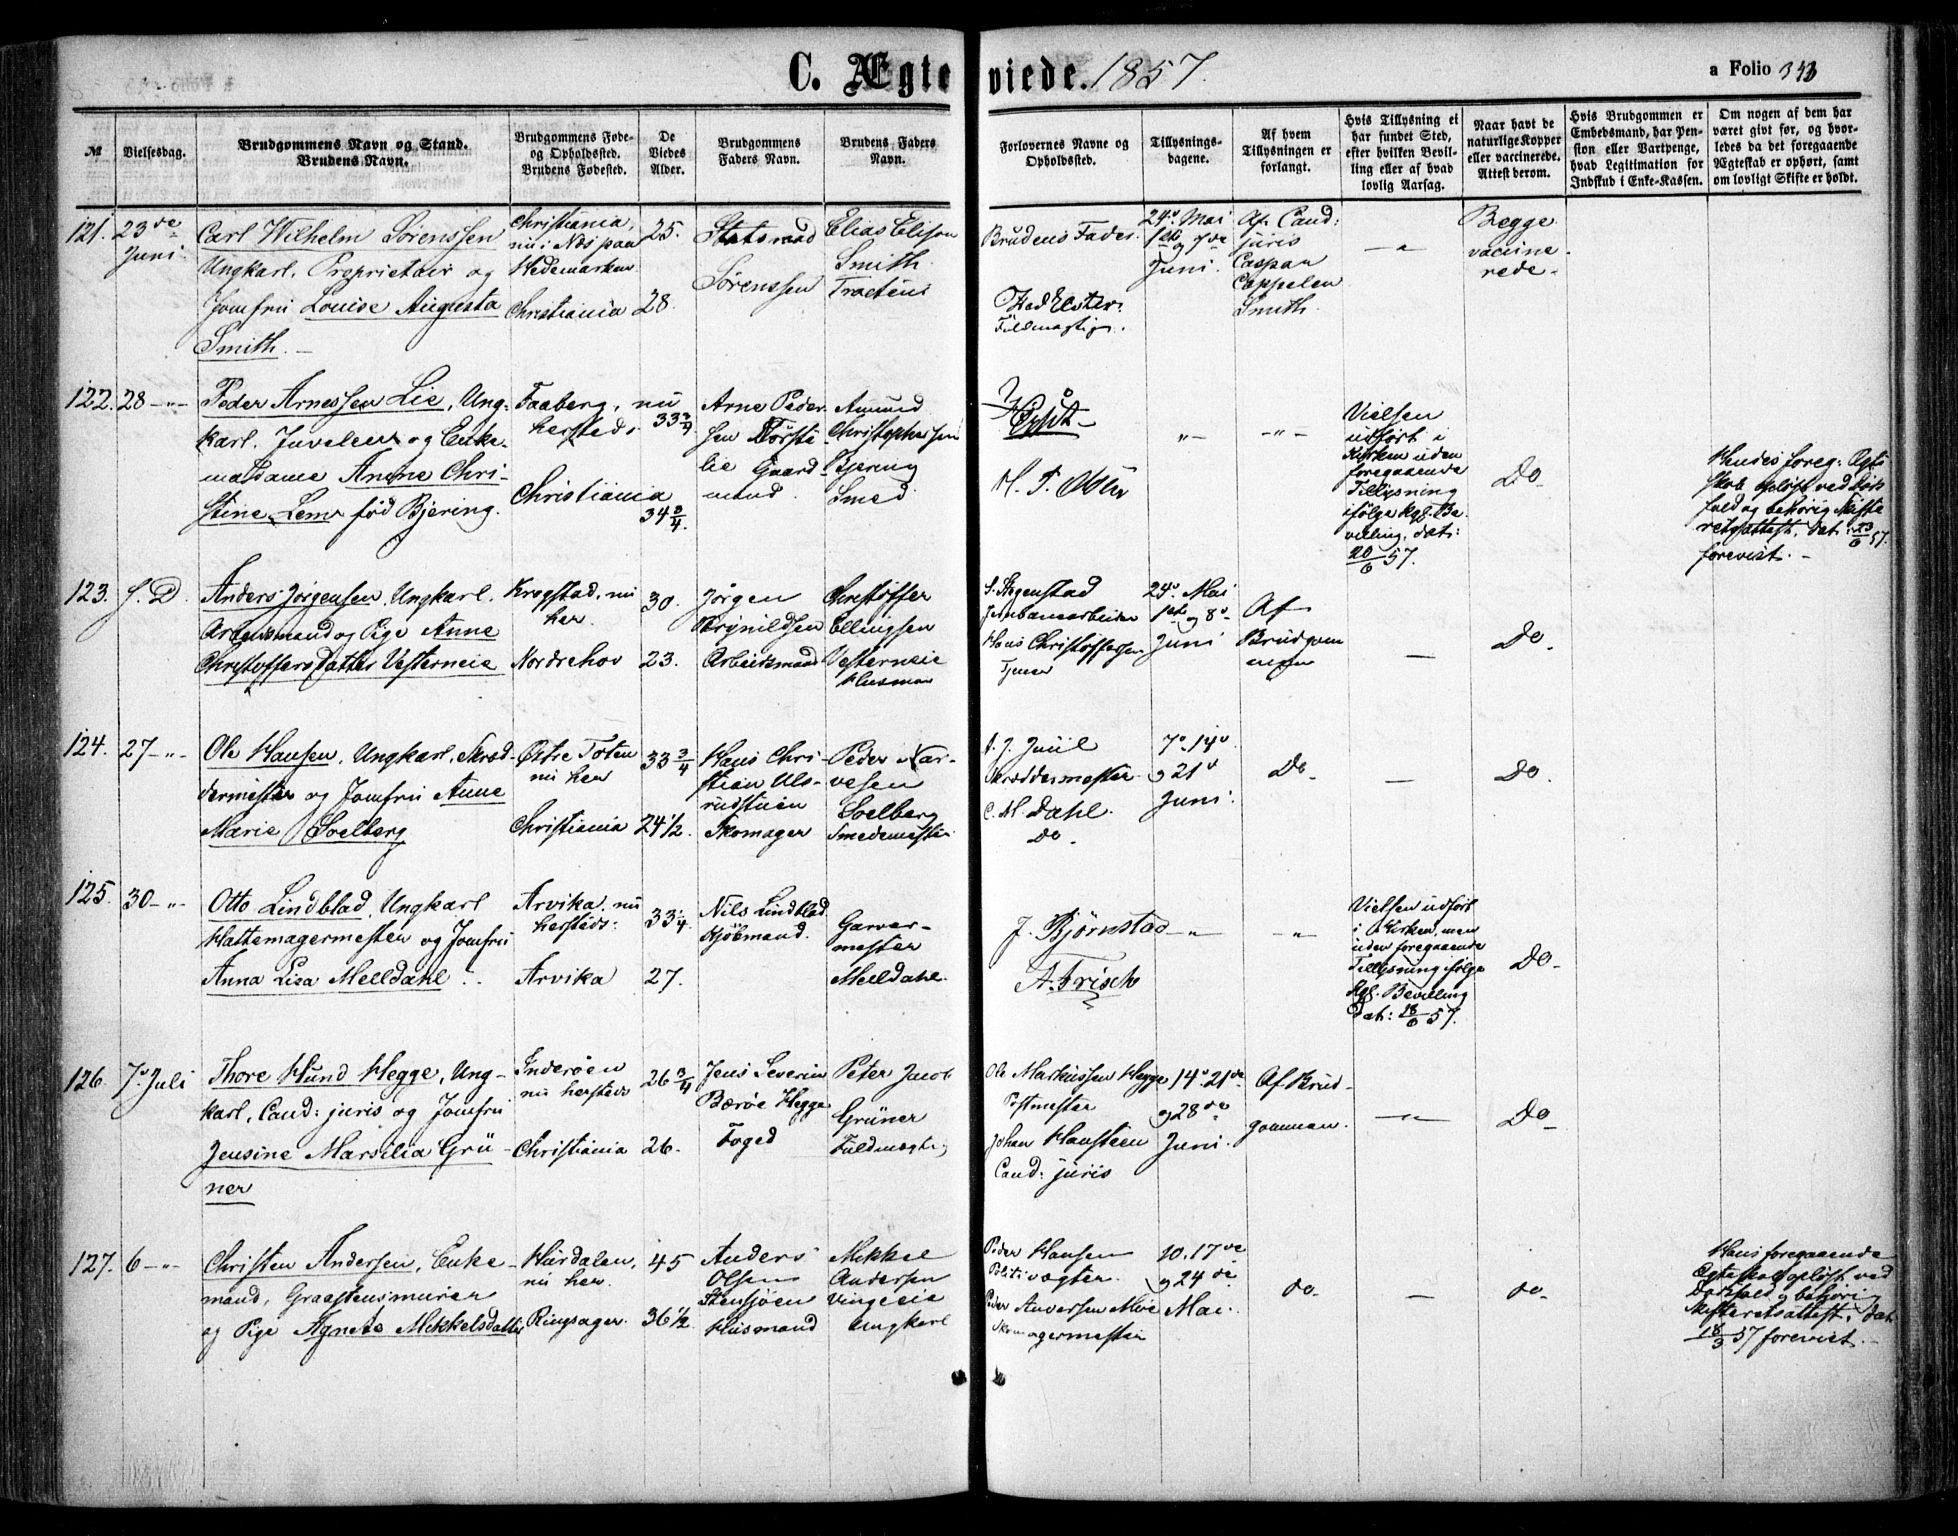 C. Ægteviede. 1857.
a Folio 343
№
Vielsesdag.
Brudgommens Navn og Stand.
Brudens Navn.
Brudgommens Føde-
og Opholdssted.
Brudens Fødested.
De
Viedes
Alder.
Brudgommens
Faders Navn.
Brudens Faders
Navn.
Forlovernes Navne og
Opholdssted.
Tillysnings-
dagene.
Af hvem
Tillysningen er
forlangt.
Hvis Tillysning ei
har fundet Sted,
efter hvilken Bevil-
ling eller af hvad
lovlig Aarsag.
Naar havt de
naturlige Kopper
eller vaccinerede.
Attest derom.
Hvis Brudgommen er
Embedsmand, har Pen-
sion eller Vartpenge,
hvad Legitimation for
Indskud i Enke-Kassen.
Om nogen af dem har
været givt før, og hvor-
ledes da det foregaaende
Ægteskab er ophørt, samt
om lovligt Skifte er holdt.
121.
23de
Juni
Carl Wilhelm Sörenssen
Ungkarl, Proprietair og
Jomfru Louise Augusta
Smith.
Christiania,
nu i Næs paa
Hedemarken
Christiania
25.
28.
Statsraad
Sörenssen
Elias Elison
Smith
Brudens Fader
24. Mai
1ste og 7de
Juni.
Af Cand:
juris
Caspar
Cappelen
Smith.
Begge
vaccine-
rede.
122.
28 -"-
Peder Arnessen Lie, Ung-
karl, Juveleer og Enke-
madame Anne Chri-
stine Lem född Bjering.
Faaberg, nu
hersteds
Christiania
33 3/4
34 3/4
Arne Peder-
sen Törste-
lie Gaard-
mand.
Amund
Christophersen
Bjering
Smed.
-"-
-"-
Vielsen
udført i
Kirken uden
foregaaende
Tillysning
ifølge Kgl. Be-
villing, dat:
20/6 57.
Do
Hendes foreg: Ægte-
skab opløst ved Døds-
fald og behørig Skifte-
retsattest, dat: 23/6 57.
forevist.
123.
S. D.
Anders Jörgensen, Ungkarl,
Arbeidsmand og Pige Anne
Christoffersdatter Vesterneie
Krogstad, nu
her.
Nordrehov
30.
23.
Jörgen
Brynildsen
Arbeidsmand
Christoffer
Ellingsen
Vesterneie
Husman
Jernbanearbeider
Hans Christoffersen
Tjener
24. Mai
1ste og 8.
Juni
Af
Brudgom
men
Do.
124.
27 -"-
Ole Hansen, Ungkarl, Skræd-
dermester og Jomfru Anne
Marie Soelberg
Østre Toten
nu her
Christiania
33 3/4
24 1/2.
Hans Chri-
stian Uls-
rudstuen
Skomager
Peder Nar-
vesen
Soelberg
Smedemester
A. J. Juul
Skræddermester
C. M. Dahl.
Do.
7. 14.
og 21.
Juni.
Do
Do.
125.
30 -"-
Otto Lindblad, Ungkarl
Hattemagermester og Jomfru
Anna Lisa Melldahl.
Arvika, nu
hersteds:
Arvika
33 1/4
27.
Nils Lindblad
Kjøbmand.
Garver-
mester
Melldahl.
J. Björnstad
A. Frisch
-"-
-"-
Vielsen udført
i Kirken, men
uden foregaaende
Tillysning ifølge
Kgl. Bevilling
dat: 18/6 57.
Do
126.
7. Juli
Thore Hund Hegge, Ung-
karl, Cand: juris og Jomfru
Jensine Marsilia Grü-
ner
Inderöen
nu hersteds
Christiania
26 3/4
26.
Jens Severin
Bærøe Hegge
Foged
Peter Jacob
Grüner
Fuldmægtig
Ole Markussen Hegge
Postmester
Johan Hansteen
Cand: juris
14. 21de
og 28de
Juni.
Af Brud-
gommen.
Do
127.
6 -"-
Christen Andersen, Enke-
mand, Graastensmurer
og Pige Agnete Mikkelsdatter
Hurdalen,
nu her.
Ringsager.
45
36 1/2
Anders
Olsen
Stensjöen
Husmand
Mikkel
Andersen
Vingeeie
Ungkarl
Peder Hansen
Politivægter.
Peder Andersen Moe
Skomagermester
10. 17de
og 24de
Mai.
do.
do.
Hans foregaaende
Ægteskab opløst ved
Dødsfald og behørig
Skifteretsattest, dat.
18/3 57 forevist.